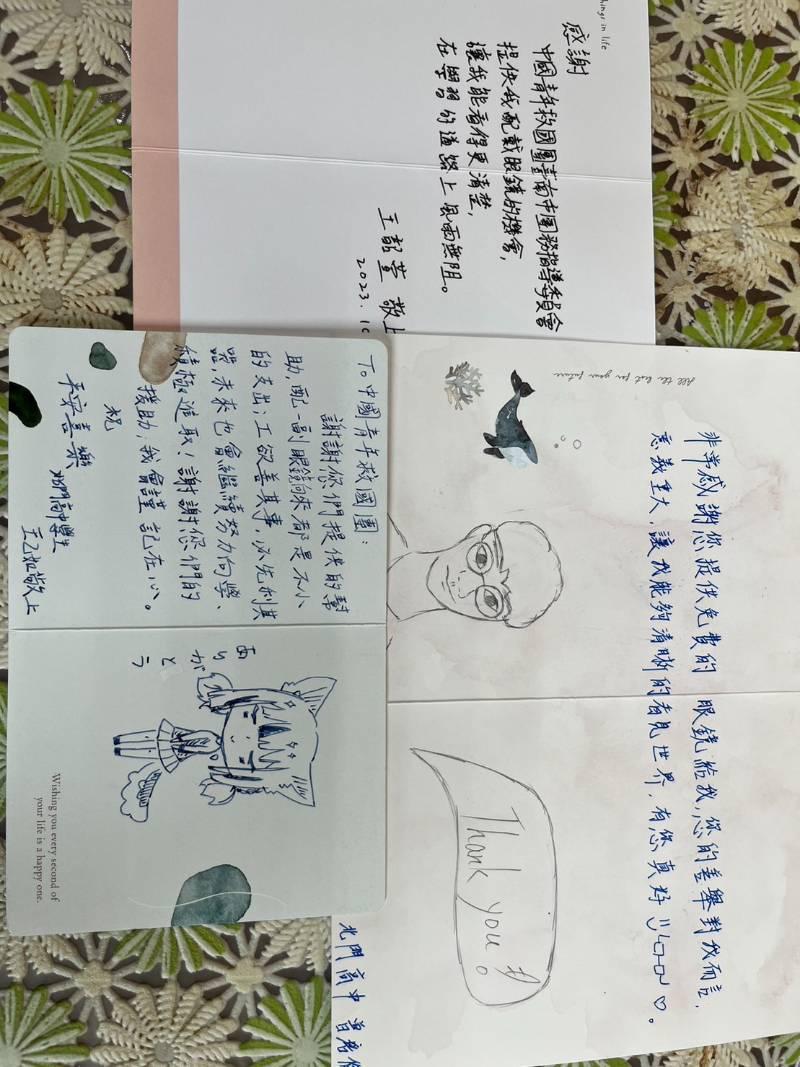 感謝
中國青年救國團臺南市團務指導委員會
提供我配戴眼鏡的機會，
讓我能看得更清楚，
在學習的道路上風雨無阻。
王韶萱 敬上
2023.10
To中國青年救國團：
謝謝你們提供的幫
助，配一副眼鏡向來都是不小
的支出；工欲善其事，必先利其
器，未來也會繼續努力向學、
積極進取！謝謝你們的
援助，我會謹記在心。
祝
平安喜樂
北門高中學生
敬上
あり
が
と
う
Wishing you every second of
your life is a happy one.
All the best for your future
非常感謝您提供免費的 眼鏡給我，您的善舉對我而言，
意義重大，讓我能夠清晰的看見世界，有您真好 ♡。
Thank you!
北門高中